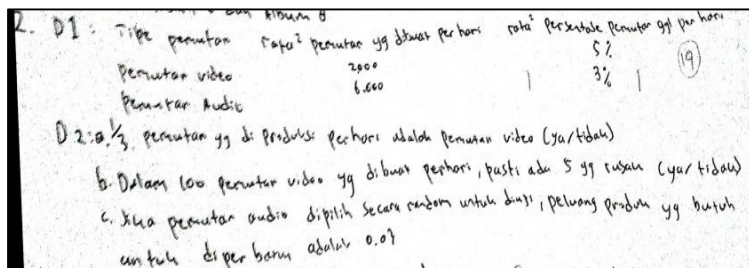 dan Album B
2. D1 : Tipe pemutar rata² pemutar yg dibuat per hari rata² persentase pemutar ggl per hari
Pemutar video 2000 5%
Pemutar Audio 6.000 3% 19
D2 : a. 1/3 pemutar yg di produksi perhari adalah pemutar video (ya/tidak)
b. Dalam 100 pemutar video yg dibuat perhari, pasti ada 5 yg rusak (ya/tidak)
c. Jika pemutar audio dipilih secara random untuk diuji, peluang produk yg butuh
untuk diperbarui adalah 0.03